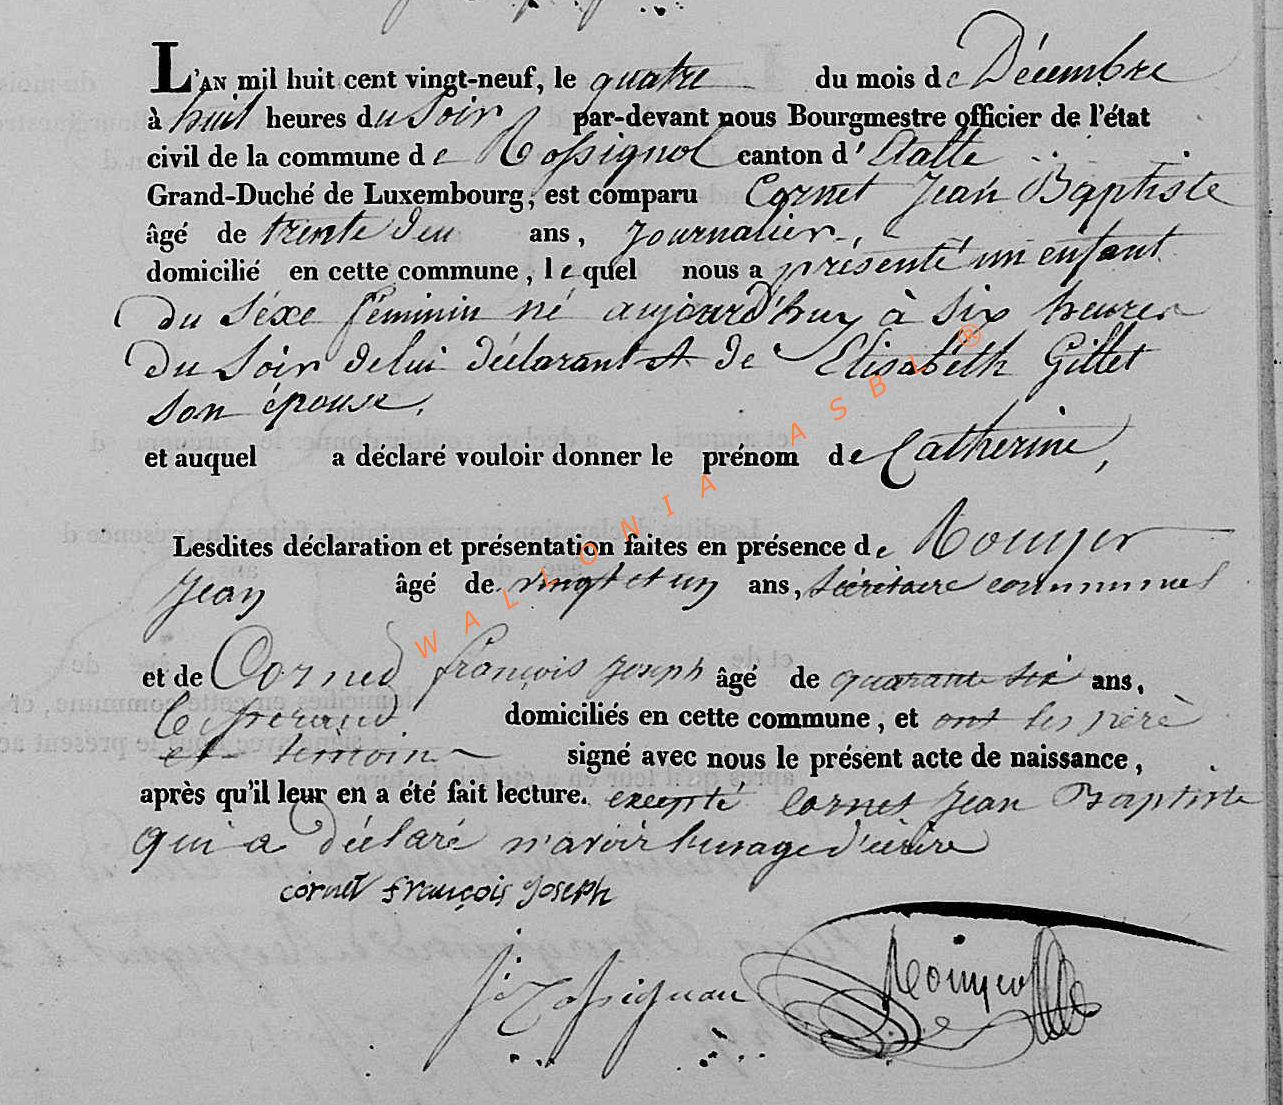 L'AN mil huit cent vingt-neuf, le quatre du mois de Décembre
à huit heures du Soir par-devant nous Bourgmestre officier de l'état
civil de la commune de Rossignol canton d'Etalle
Grand-Duché de Luxembourg, est comparu Cornet Jean Baptiste
âgé de trente deu ans, Journalier,
domicilié en cette commune, lequel nous a présenté un enfant
du séxe féminin né aujourd'huy à six heures
du Soir de lui déclarant et de Elisabéth Gillet
son épouse,
et auquel a déclaré vouloir donner le prénom de Catherine,
Lesdites déclaration et présentation faites en présence de Rouyer
Jean âgé de vingt et un ans, sécrétaire communal
et de Cornet françois Joseph âgé de quarante six ans,
domiciliés en cette commune, et ont les père
et temoin signé avec nous le présent acte de naissance,
après qu'il leur en a été fait lecture. excepté Cornet Jean Baptiste
qui a déclaré n'avoir l'usage d'écrire
cornet françois Joseph
Rouyer
WALLONIA ASBL ®